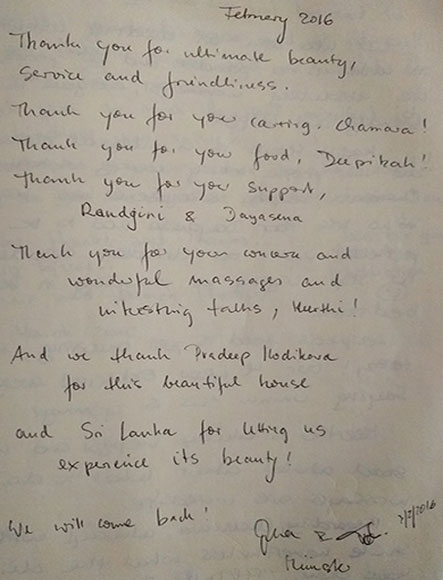 February 2016
Thank you for ultimate beauty,
service and friendliness.
Thank you for your caring, Chamara!
Thank you for your food, Deepikah!
Thank you for your support,
Randgiri & Dayasena
Thank you for your concern and
wonderful massages and
interesting talks, Keerthi!
And we thank Pradeep Kodikara
for this beautiful house
and Sri Lanka for letting us
experience its beauty!
We will come back!
2/2/2016